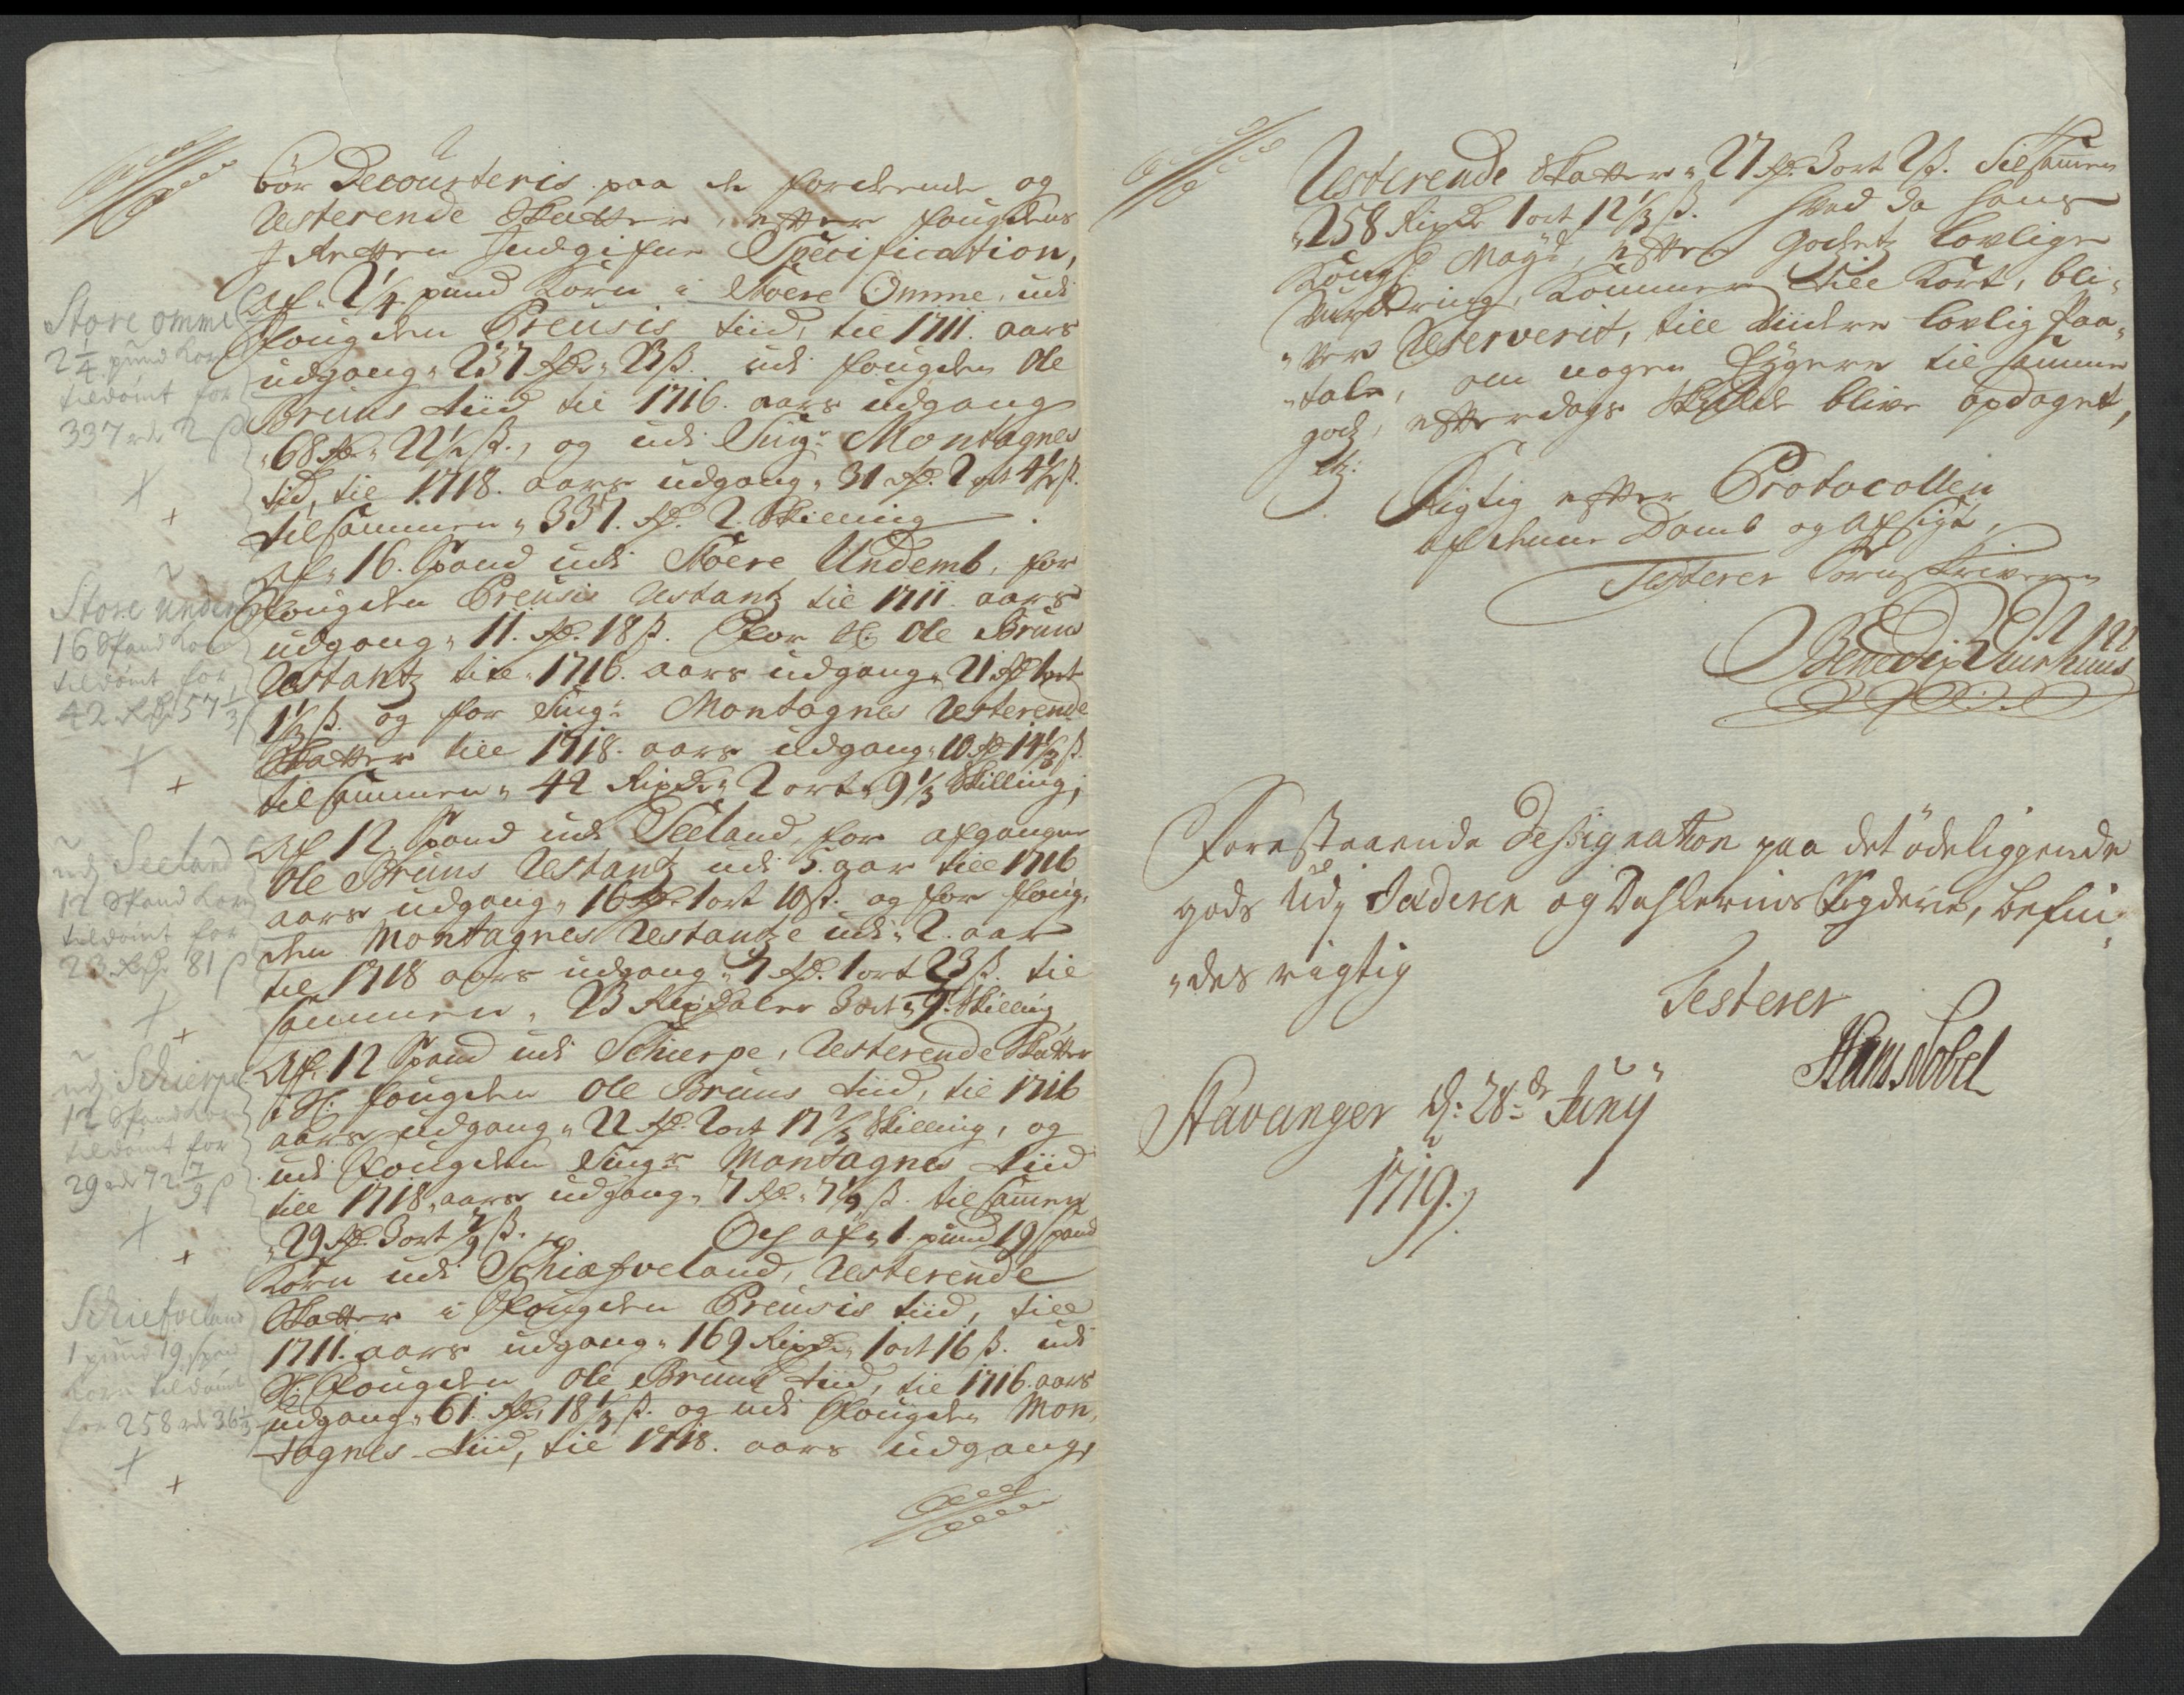 bör Decourteris paa de forderende og
Resterende Skatter, efter fougdens
I Retten Indgifne Specification,
Af 2 1/4 pund Korn i Stoere Omme, udi
fougden Preusis tiid, til 1711. aars
udgang, 237 Rdr. 23 ß. udi fougden Ole
Bruns tiid til 1716. aars udgang
68 Rdr. 22 1/2 ß., og udi Sing.r Montagnes
tid, til 1718. aars udgang, 31 Rd. 2 ort 4 1/2 ß.
tilsammen, 337. Rd. 2. Skilling
Af 16. Spand udi Stoere Undemb, for
fougden Preusis Restantz til 1711. aars
udgang, 11. Rd. 18 ß. For H.r Ole Bruns
Restantz till 1716. aars udgang, 21 Rd 1 ort
1 1/3 ß. og for Sing.r Montagnes Resterende
Skatter till 1718. aars udgang, 10 Rd 14 1/3 ß.
tilsammen, 42 Rixdr. 2 ort 9 1/3 Skilling;
Af 12 Spand udi Seeland, for afgangne
Ole Bruns Restantz udi 5. aar till 1716
aars udgang, 16 Rdr 1 ort 10 ß. og for foug-
den Montagnes Restantze udi 2. aar
til 1718 aars udgang, 7 Rd. 1 ort 23 ß. til
sammen, 23 Rixdaler 3 ort 9. Skilling
Af 12 Spand udi Schierpe, Resterende Skatter
i H.r fougden Ole Bruns tiid, til 1716
aars udgang, 22 Rd. 2 ort 17 2/3 Skilling, og
udi Fougden Sing.r Montagnes tiid
till 1718, aars udgang, 7 Rd. 7 1/9 ß. tilsammen
29 Rd. 3 ort 7/9 ß. Og af 1. pund 19 spand
Korn udi Schiæfveland, Resterende
Skatter i Fougden Preusis tiid, till
1711. aars udgang, 169 Rixdr. 1 ort 16 ß. udi
H.r Fougden Ole Bruns tiid, til 1716. aars
udgang, 61. Rdr. 18 1/3 ß. og udi Fougden Mon-
tagnes tiid, til 1718. aars udgang,
Store omme
2 1/4 pund Korn
tildömt for
337 rdr 2 ß
Store Undem
16 Spand Korn
tildömt for
42 Rdr 57 1/3 ß
udj Seeland
12 Spand Korn
tildömt for
23 Rdr 81 ß
udj Schierpe
12 Spand Korn
tildömt for
29 rdr 72 7/9 ß
Schiefveland
1 pund 19 span
Korn tildömt
for 258 rdr 36 1/3
Resterende Skatter, 27 Rd. 3 ort 2 ß. Tilsammen
258 Rixdr. 1 ort 12 1/3 ß. hvad da hans
Kongl. May.t, efter godsetz lovlige
Vurdering, Kommer till Kort, bli-
ver Reserverit, till Viidere lovlig Paa-
tale, om nogen Eyere til samme
gods, efterdags skulde blive opdaget,
etc:
Rigtig efter Protocollen
af denne Domb og Afsigt,
Testerer Sorenskriveren
Forestaaende Dessignation paa det ödeliggende
gods Udj Jæderen og Dahlernes Fogderie, befin-
des rigtig
Testerer
Hans Nobel
Stavanger d: 28.de Junij
1719.